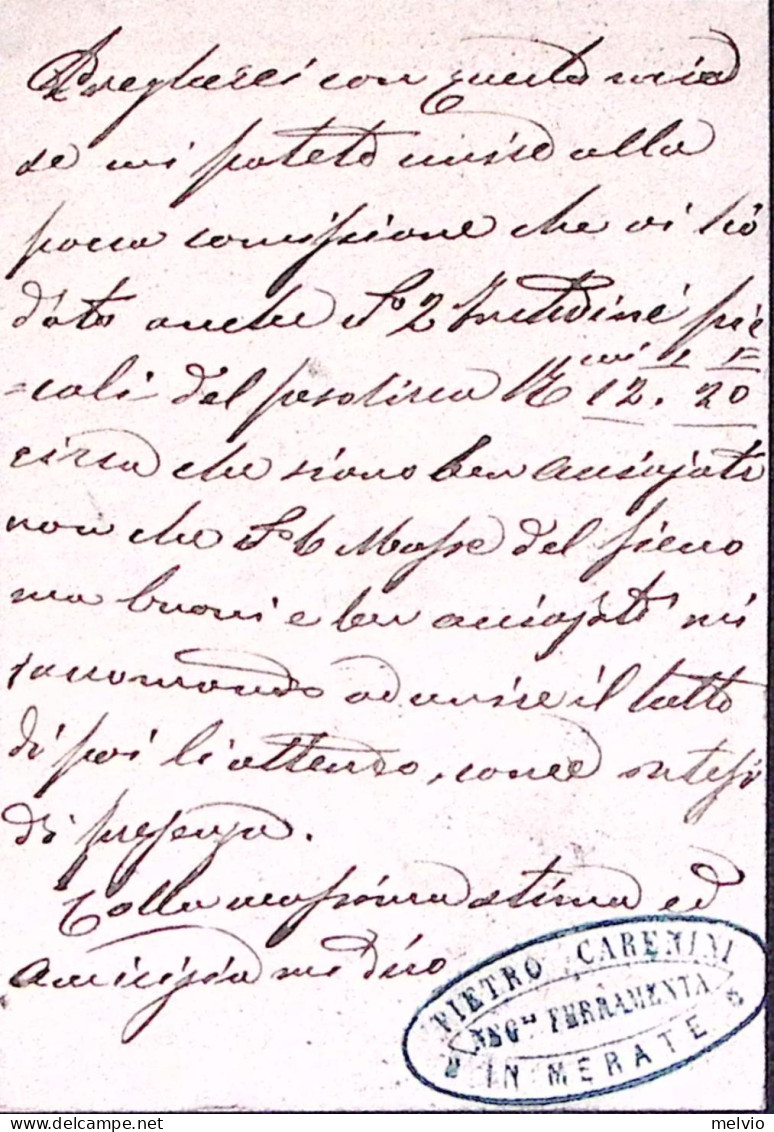 Pregherei con questa mia
se mi potete unire alla
poca comissione che vi hò
dato anche N° 2 Incudini pic
=coli del peso circa
12. 20
circa che siano ben acciajati
non che N° 6 Masse del fieno
ma buoni e ben acciajati mi
raccomando ad unire il tutto
di poi li attendo, come intesi
di presenza.
Colla massima stima ed
amicizia mi dico
PIETRO CARENINI
NEG.te FERRAMENTA
IN MERATE
melvio